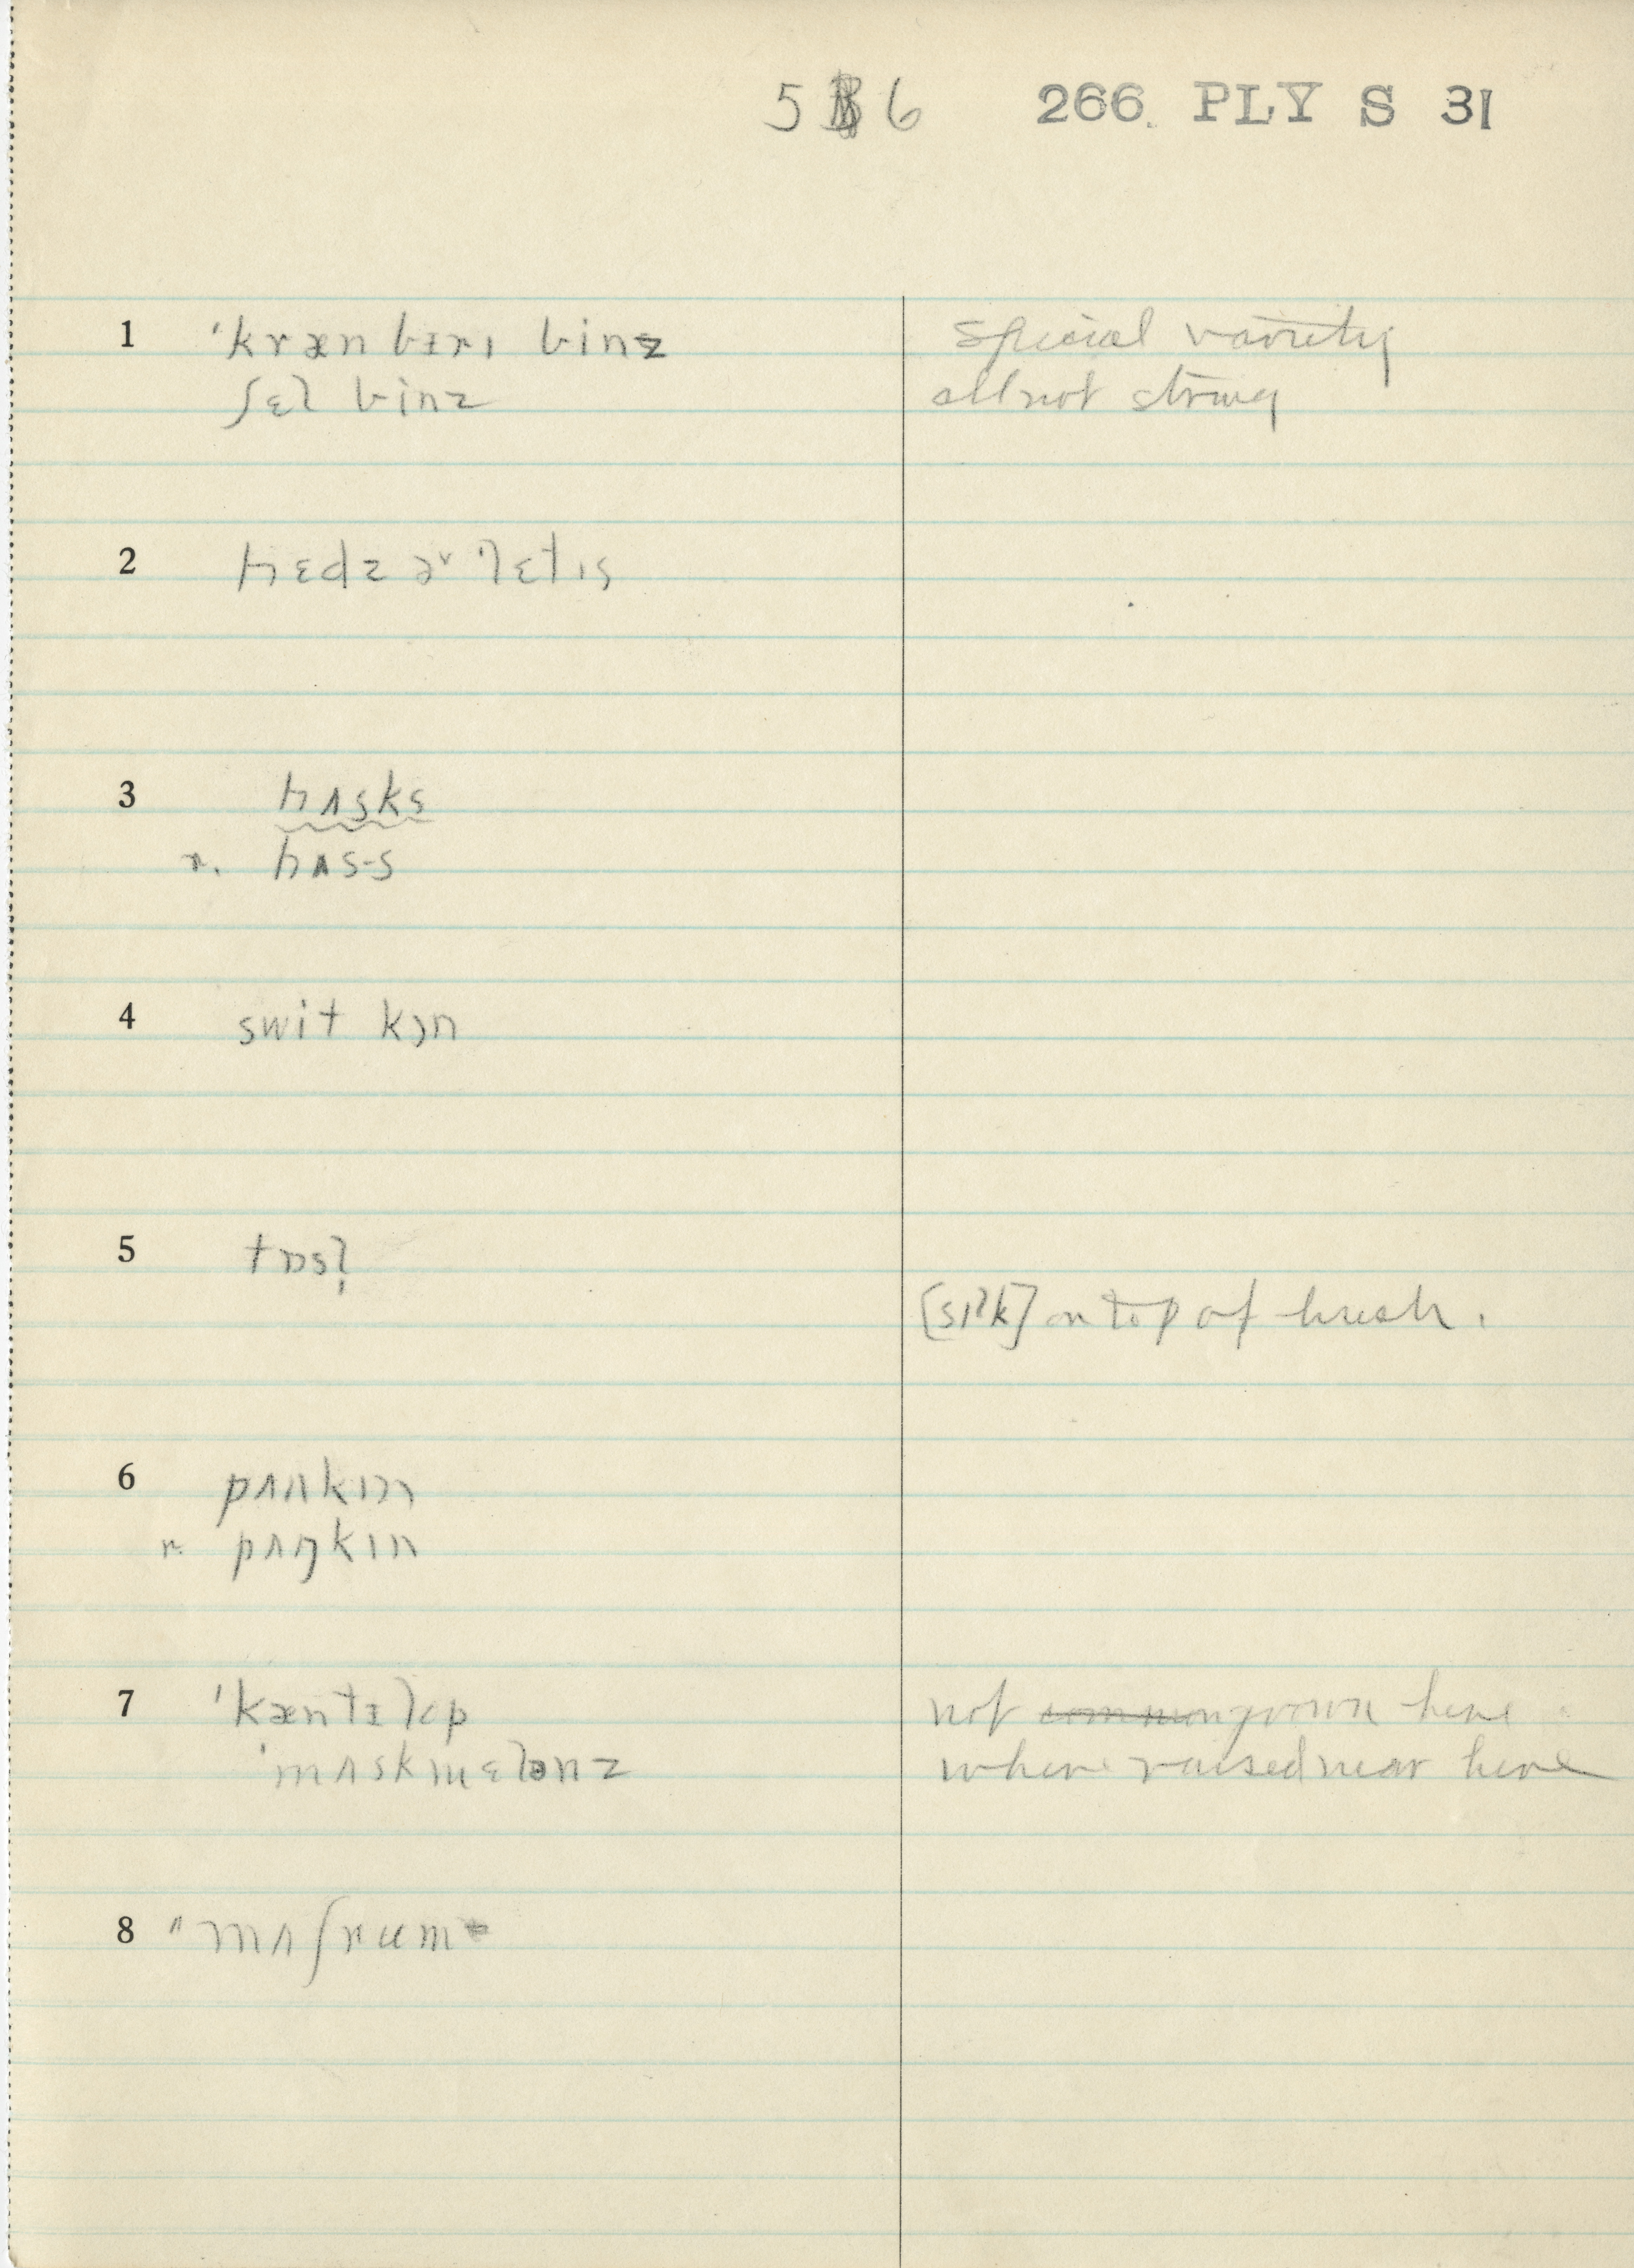 5 6 266. PLY S 31
1 ˈkrænbɪrɪ binz special variety
ʃɛl binz all not string
2 hɛdz əv ˈlɛtɪs
3 hʌsks
r. hʌs·s
4 swit kɔn
5 tɒsl̩
[sɪlk] on top of husk.
6 pʌnkɪn
r. pʌŋkɪn
7 ˈkæntɪlop not common grown here
ˈmʌskmɛlənz where raised near here
8 "mʌʃrum